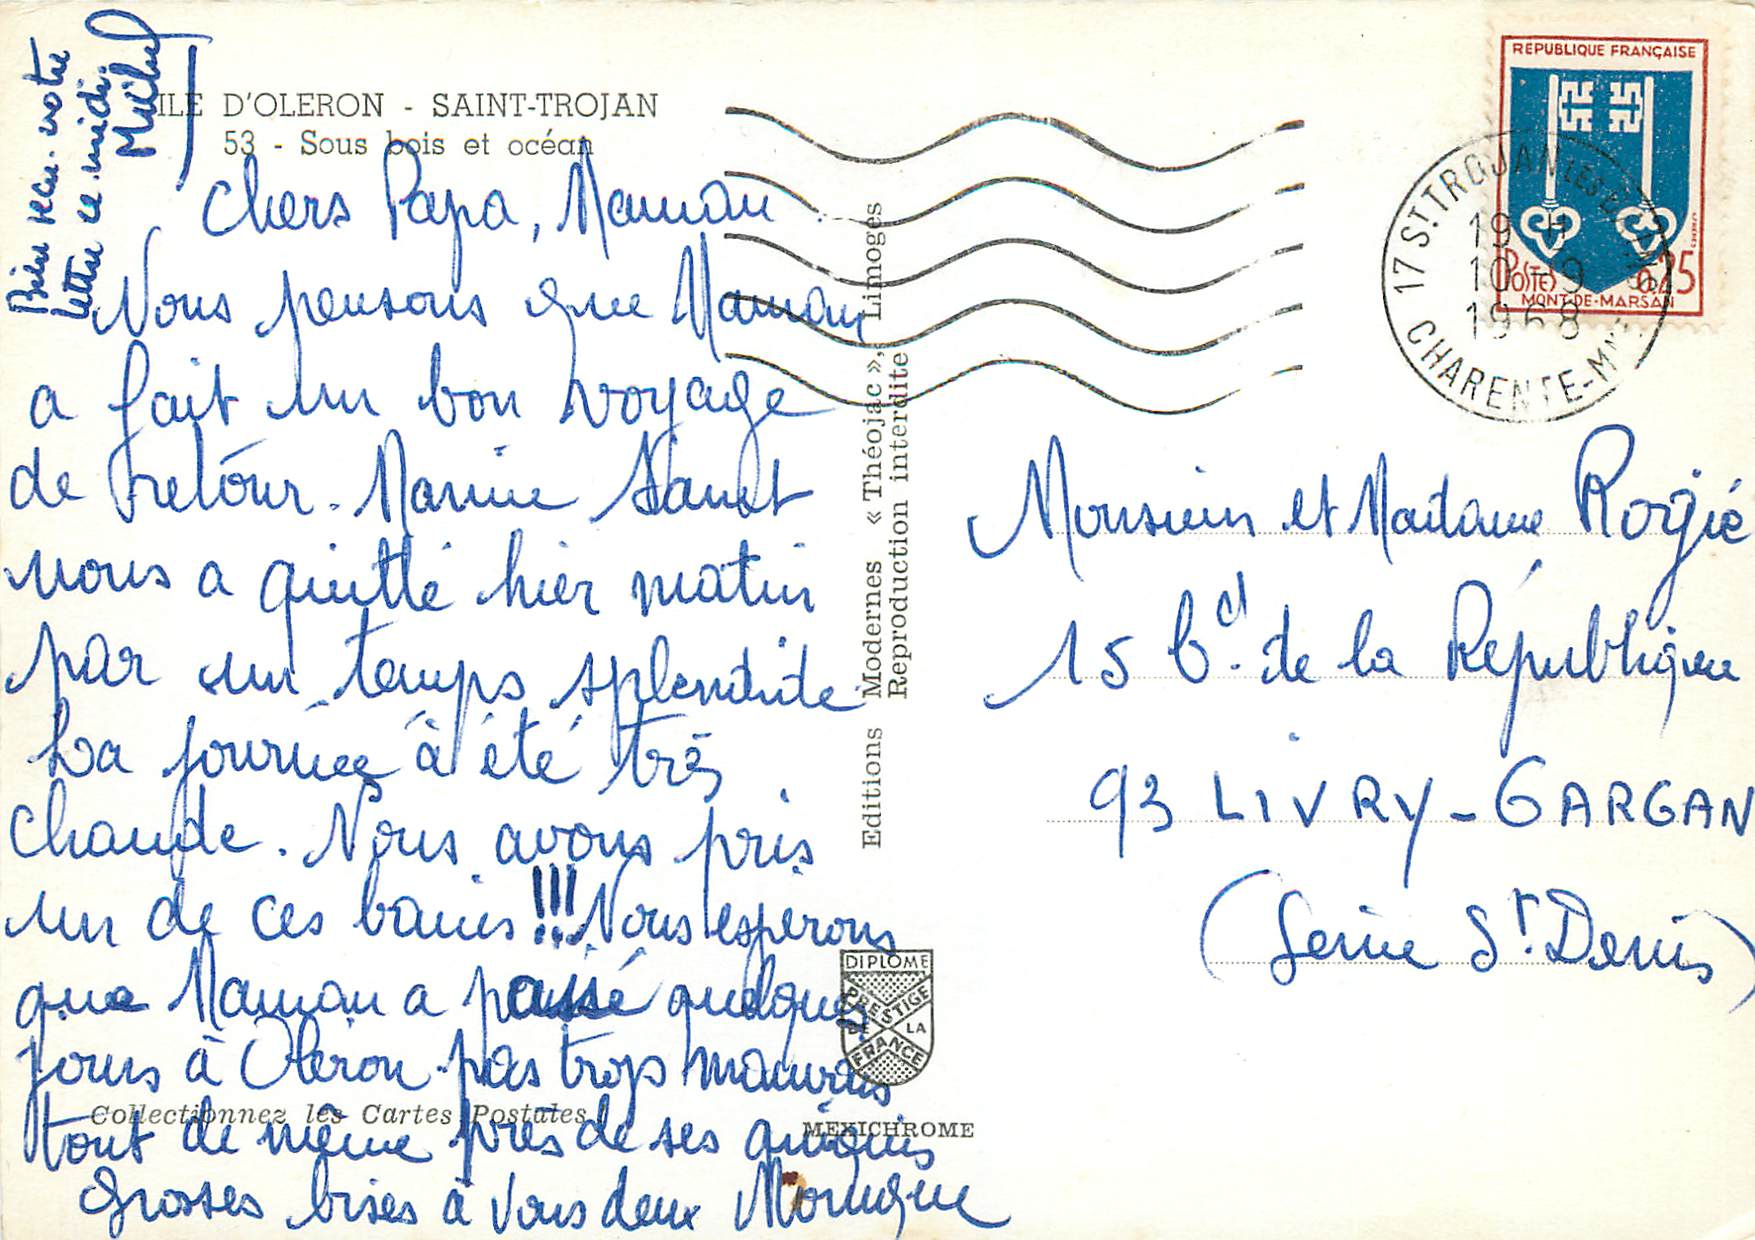 Bien reçu votre
lettre ce midi.
Michel
ILE D'OLERON - SAINT-TROJAN
53 - Sous bois et océan
Chers Papa, Maman
Nous pensons que Maman
a fait un bon voyage
de retour. Marine
nous a quitté hier matin
par un temps splendide
La journée à été très
chaude. Nous avons pris
un de ces bains !!! Nous esperons
que Maman a passé quelques
jours à Oleron pas trop mauvais
tout de même près de ses
Grosses bises à vous deux Monique
Collectionnez les Cartes Postales
Editions Modernes « Théojac », Limoges
Reproduction interdite
DIPLOME
PRESTIGE
DE LA
FRANCE
MEXICHROME
REPUBLIQUE FRANÇAISE
POSTES
0,25
MONT-DE-MARSAN
17 ST TROJAN LES BAINS
19 H
10 - 9
1968
CHARENTE-MME
Monsieur et Madame Rorgié
15 Bd. de la République
93 LIVRY-GARGAN
(Seine St. Denis)